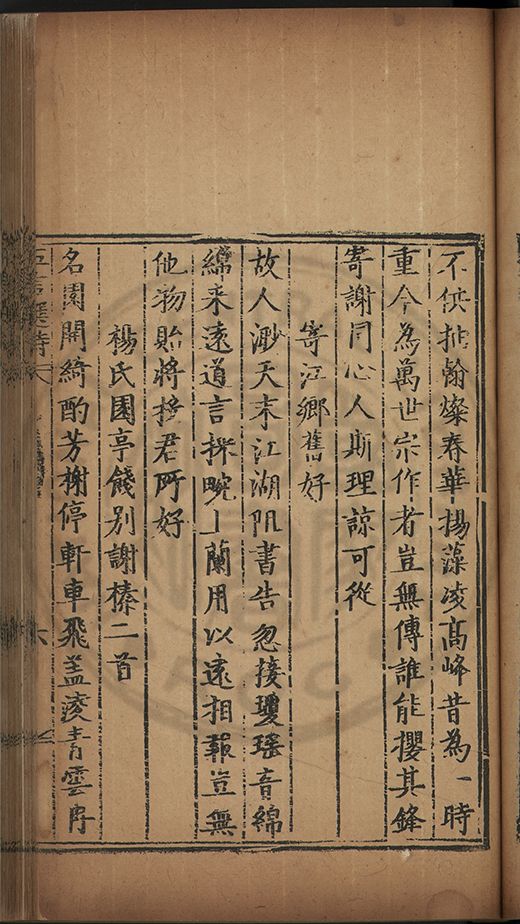 不供抽翰燦春華揚藻凌高峰昔為一時
重今為萬世宗作者豈無傳誰能攖其鋒
寄謝同心人斯理諒可從
寄江鄉舊好
故人渺天末江湖阻書告忽接瓊瑤音綿
綿來遠道言採畹上蘭用以遠相報豈無
他物貽將投君所好
楊氏園亭餞別謝榛二首
名園開綺酌芳榭停軒車飛蓋凌青雲丹